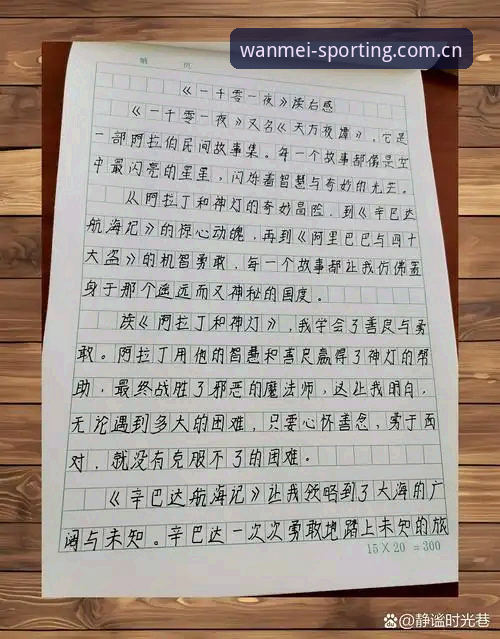 wanmei-sporting.com.cn
《一千零一夜》读后感
《一千零一夜》又名《天方夜谭》，它是
一部阿拉伯民间故事集。每一个故事都像是空
中最闪亮的星星，闪烁着智慧与奇妙的光芒。
从阿拉丁和神灯的奇妙冒险，到《辛巴达
航海记》的惊心动魄，再到《阿里巴巴与四十
大盗》的机智勇敢，每一个故事都让我仿佛置
身于那个遥远而又神秘的国度。
读《阿拉丁和神灯》，我学会了善良与勇
敢。阿拉丁用他的智慧和善良赢得了神灯的帮
助，最终战胜了邪恶的魔法师，这让我明白，
无论遇到多大的困难，只要心怀善念，勇于面
对，就没有克服不了的困难。
《辛巴达航海记》让我领略到了大海的广
阔与未知。辛巴达一次次勇敢地踏上未知的旅
15×20 =300
百度@静谧时光巷